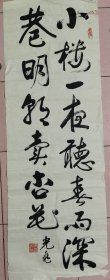 小楼一夜听春雨深
巷明朝卖杏花